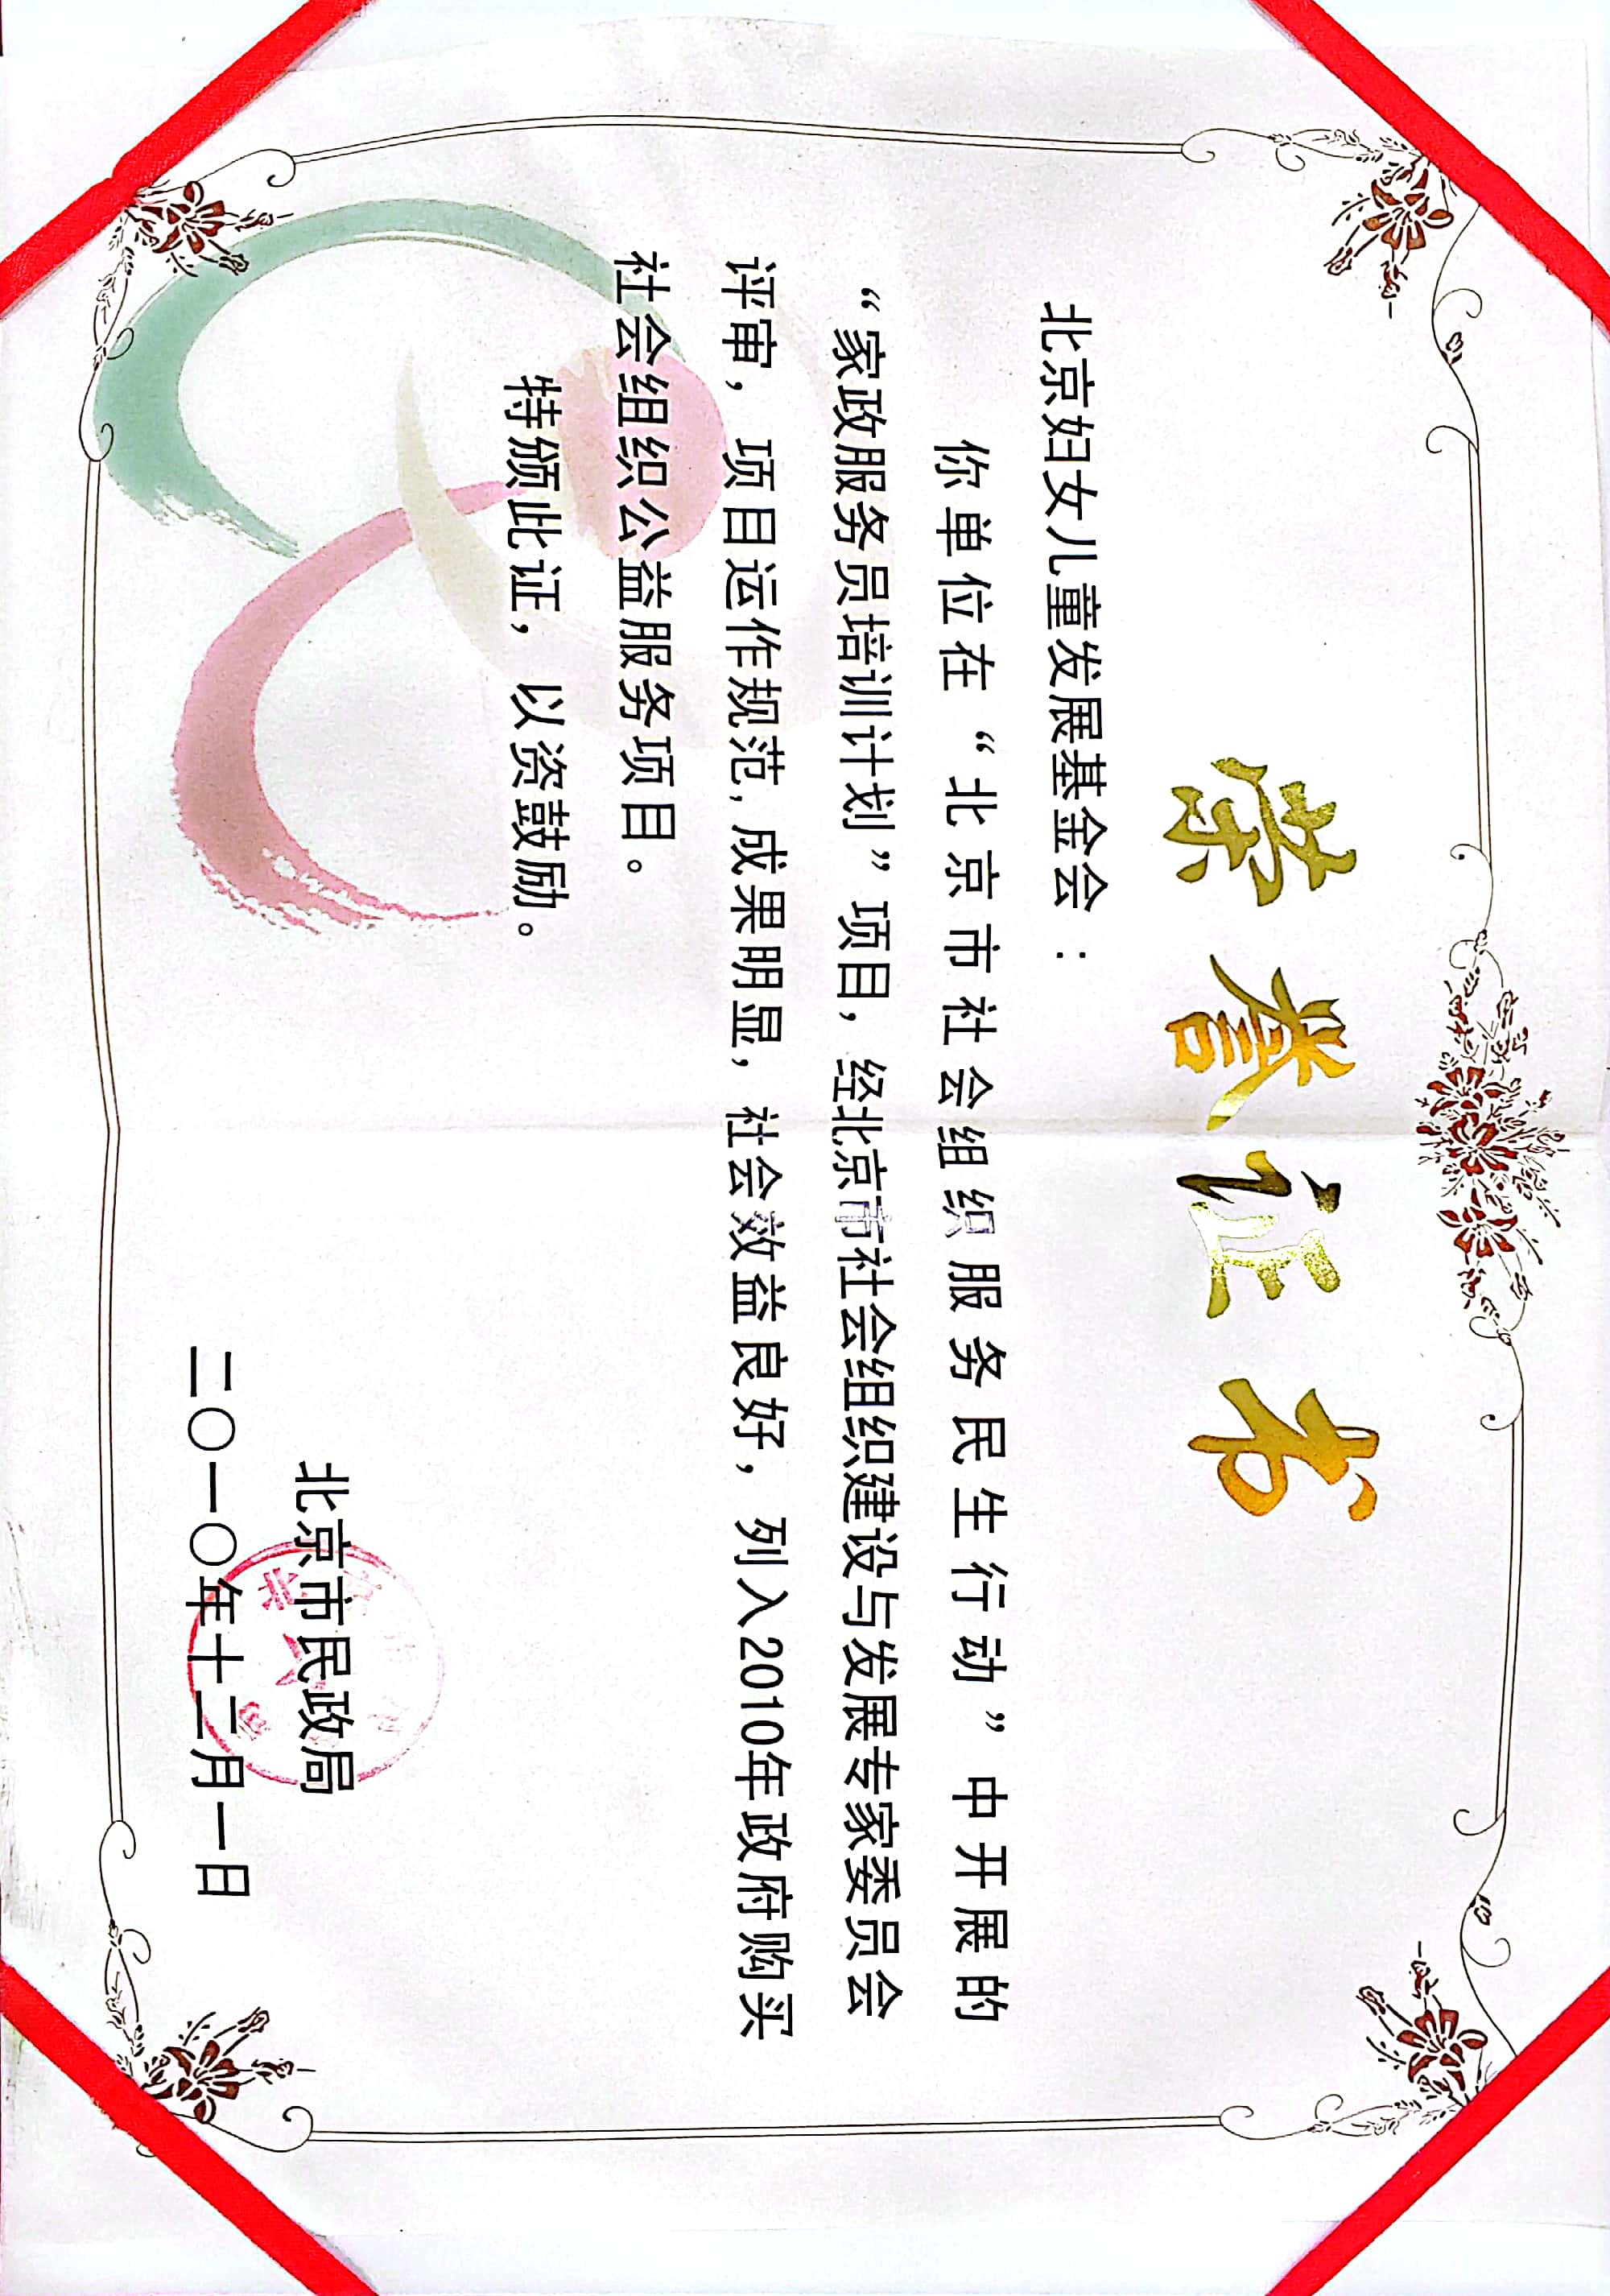 荣誉证书
北京妇女儿童发展基金会：
你单位在“北京市社会组织服务民生行动”中开展的
“家政服务员培训计划”项目，经北京市社会组织建设与发展专家委员会
评审，项目运作规范，成果明显，社会效益良好，列入2010年政府购买
社会组织公益服务项目。
特颁此证，以资鼓励。
北京市民政局
二〇一〇年十二月一日